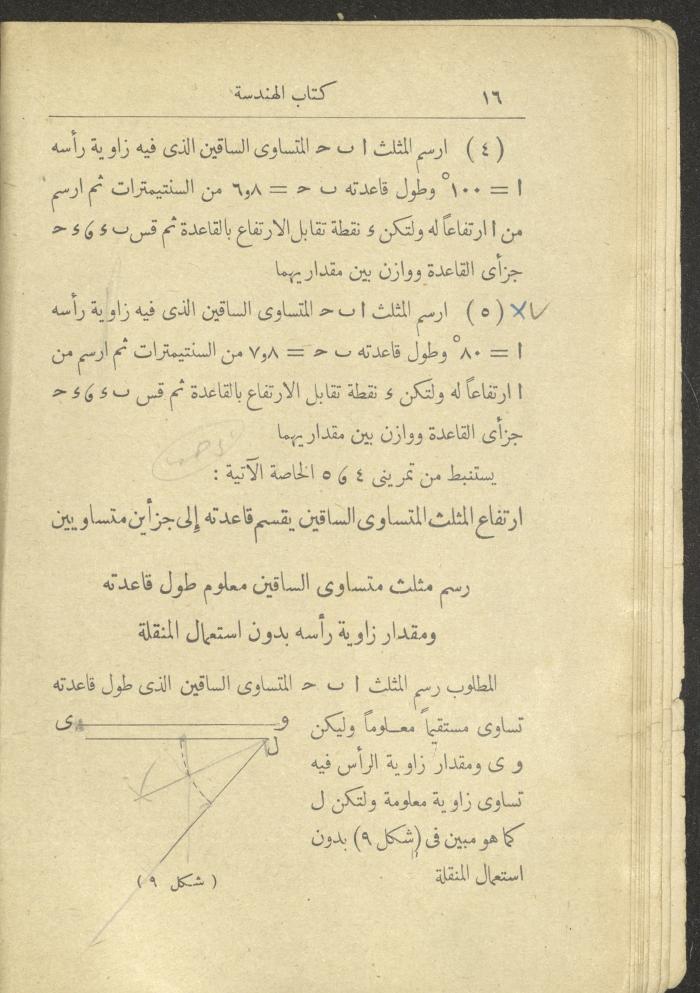 ١٦
كتاب الهندسة
(٤) ارسم المثلث ا ب ح المتساوى الساقين الذى فيه زاوية رأسه
ا = ١٠٠° وطول قاعدته ب ح = ٨و٦ من السنتيمترات ثم ارسم
من ا ارتفاعاً له ولتكن ء نقطة تقابل الارتفاع بالقاعدة ثم قس ب ء ٯ ء ح
جزأى القاعدة ووازن بين مقداريهما
(٥) ارسم المثلث ا ب ح المتساوى الساقين الذى فيه زاوية رأسه
ا = ٨٠° وطول قاعدته ب ح = ٨و٧ من السنتيمترات ثم ارسم من
ا ارتفاعاً له ولتكن ء نقطة تقابل الارتفاع بالقاعدة ثم قس ب ء ٯ ء ح
جزأى القاعدة ووازن بين مقداريهما
يستنبط من تمرينى ٤ ٯ ٥ الخاصة الآتية :
ارتفاع المثلث المتساوى الساقين يقسم قاعدته إلى جزأين متساويين
رسم مثلث متساوى الساقين معلوم طول قاعدته
ومقدار زاوية رأسه بدون استعمال المنقلة
المطلوب رسم المثلث ا ب ح المتساوى الساقين الذى طول قاعدته
تساوى مستقيماً معلوماً وليكن
و ى ومقدار زاوية الرأس فيه
تساوى زاوية معلومة ولتكن ل
كما هو مبين فى (شكل ٩) بدون
استعمال المنقلة
و
ى
ل
(شكل ٩)